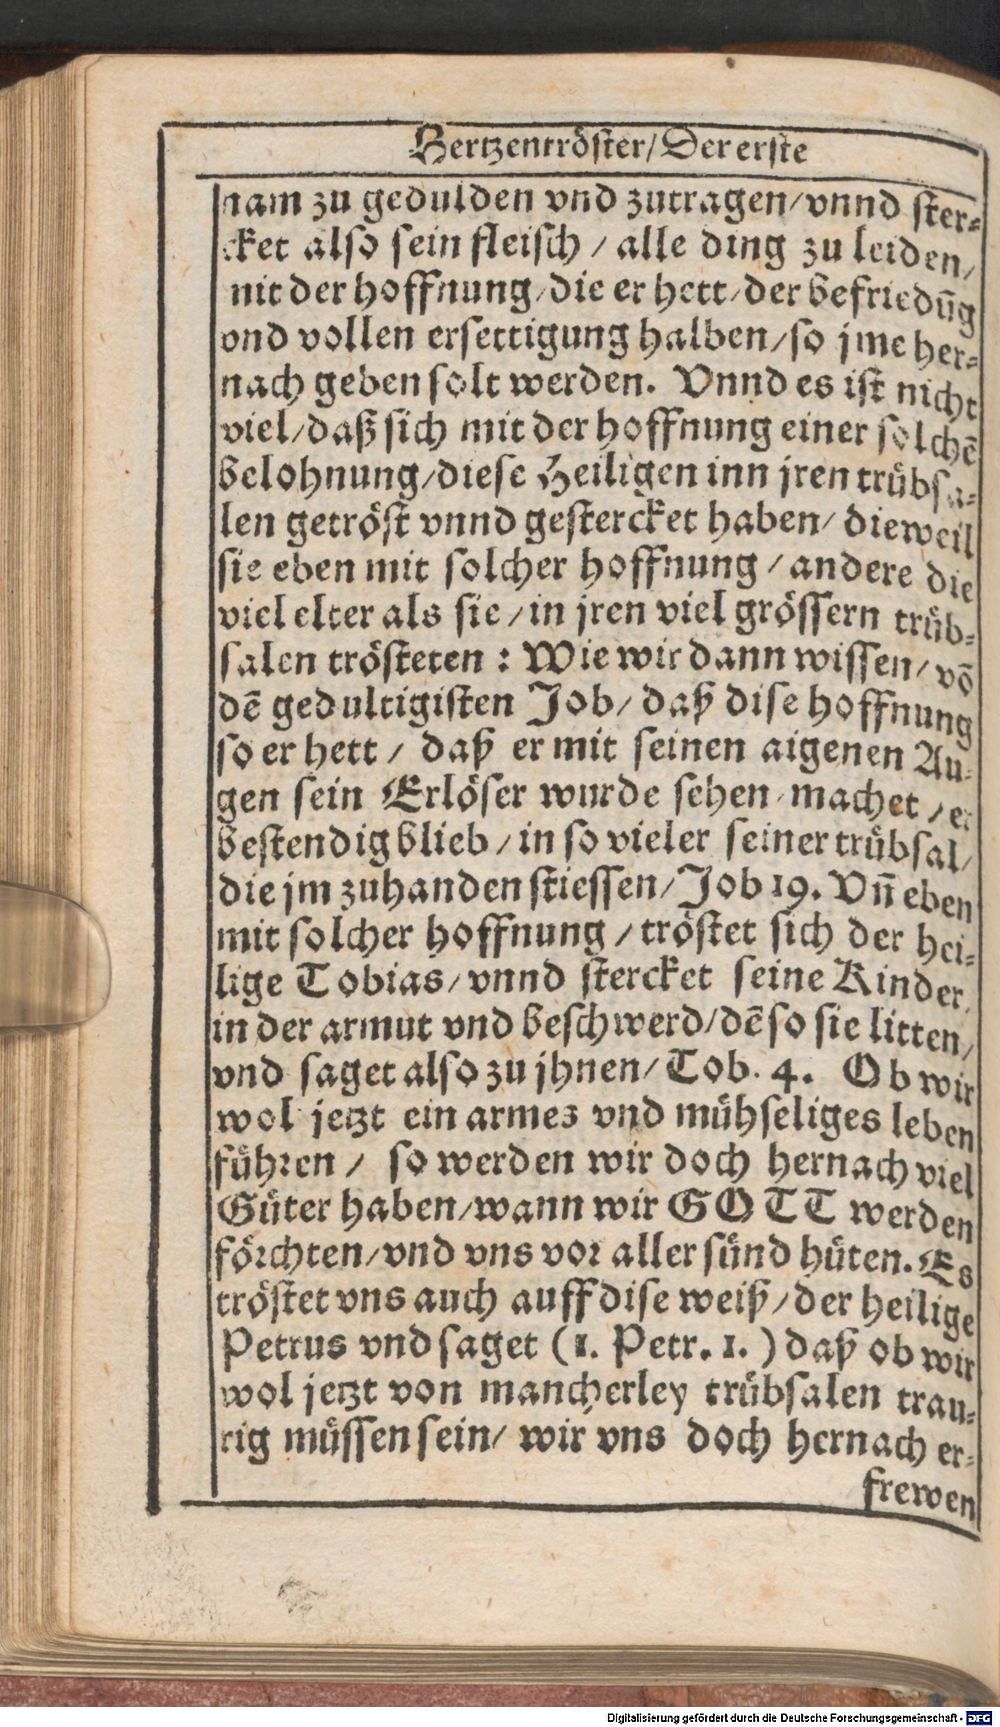 Hertzentröster/ Der erste
nam zu gedulden vnd zutragen/ vnnd ster-
cket also sein fleisch / alle ding zu leiden/
mit der hoffnung/ die er hett/ der befriedūg
vnd vollen ersettigung halben/ so jme her-
nach geben solt werden. Vnnd es ist nicht
viel/ daß sich mit der hoffnung einer solchē
belohnung/ diese Heiligen inn jren trübsa-
len getröst vnnd gestercket haben/ dieweil
sie eben mit solcher hoffnung / andere die
viel elter als sie / in jren viel grössern trüb-
salen trösteten : Wie wir dann wissen/ vō
dē gedultigisten Job/ daß dise hoffnung
so er hett / daß er mit seinen aigenen Au-
gen sein Erlöser wurde sehen machet / er
bestendig blieb / in so vieler seiner trübsal/
die jm zuhanden stiessen/ Job 19. Vñ eben
mit solcher hoffnung / tröstet sich der hei-
lige Tobias/ vnnd stercket seine Kinder
in der armut vnd beschwerd/ dē so sie litten/
vnd saget also zu jhnen/ Tob. 4. Ob wir
wol jetzt ein armes vnd mühseliges leben
führen / so werden wir doch hernach viel
Güter haben/ wann wir GOTT werden
förchten/ vnd vns vor aller sünd hüten. Es
tröstet vns auch auff dise weiß/ der heilige
Petrus vnd saget (1. Petr. 1.) daß ob wir
wol jetzt von mancherley trübsalen trau-
rig müssen sein/ wir vns doch hernach er-
frewen
Digitalisierung gefördert durch die Deutsche Forschungsgemeinschaft - DFG